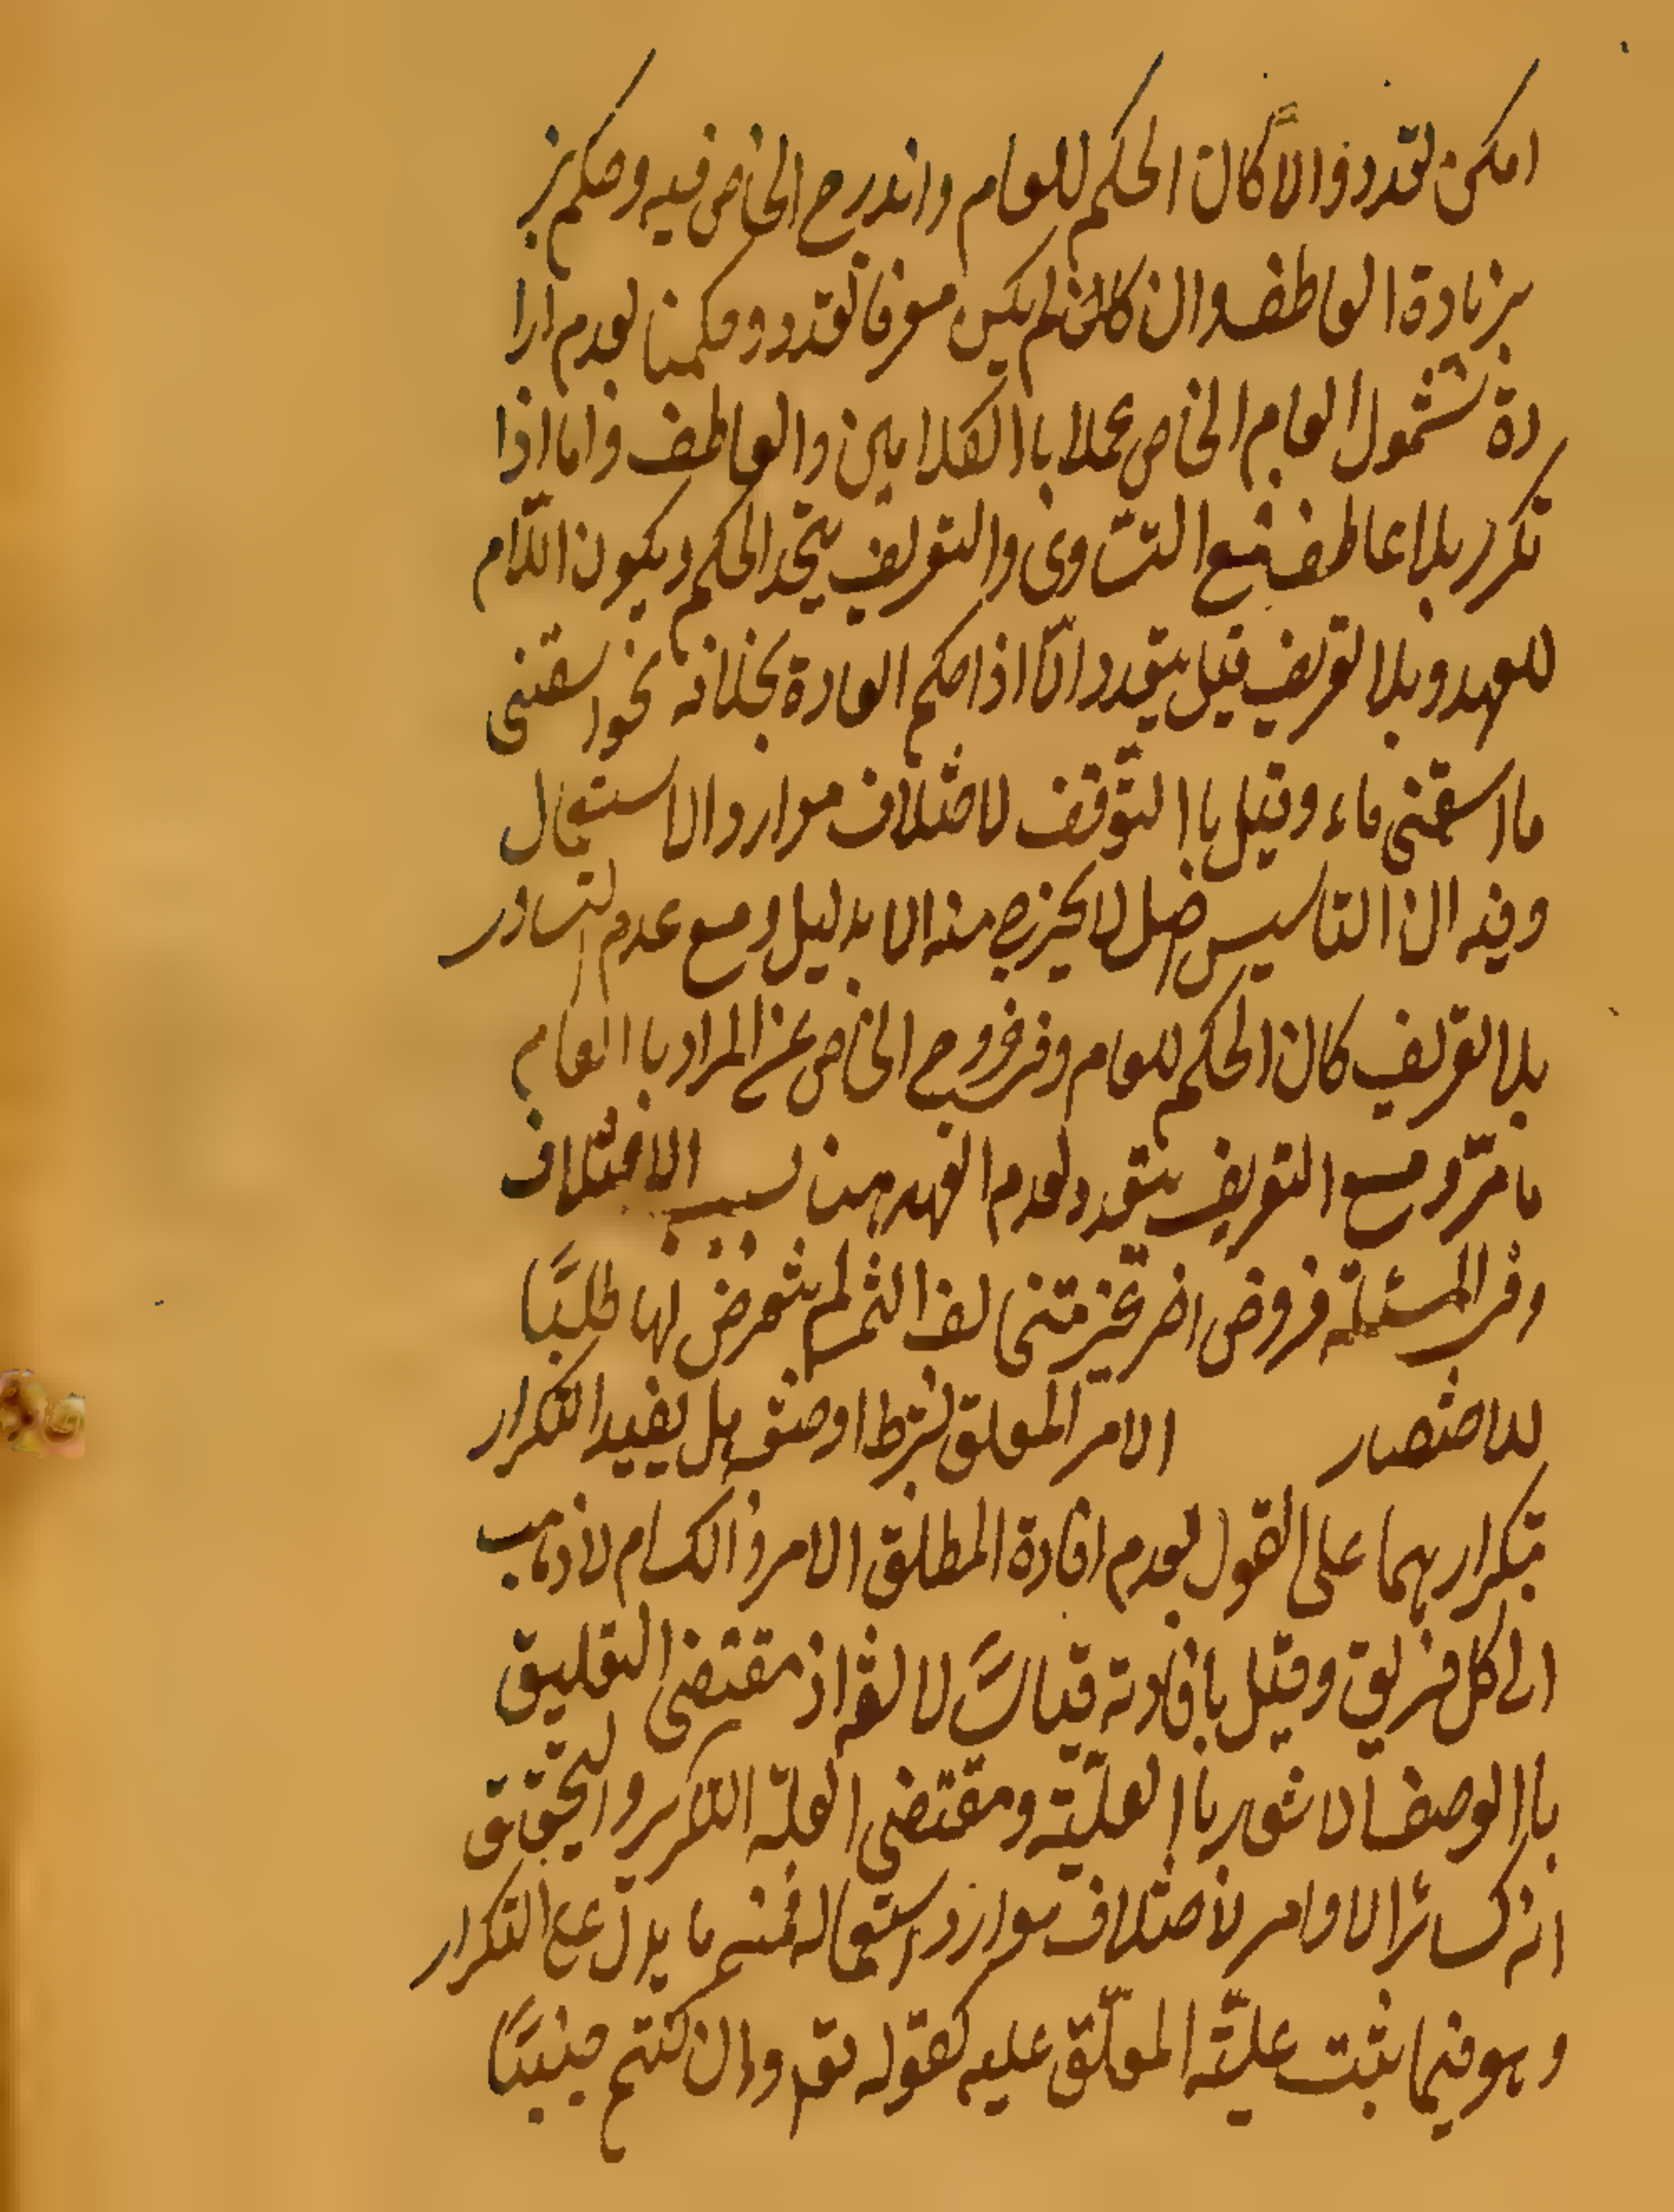 امكن تعدد والاّ كان الحكم للعام واندرج الخاص فيه وحكم بز
بزيادة العاطف وان كان لم يكن معرفا تعدد وحكمنا لعدم ارا
دة شمول العام الخاص عملا باالكلامين والعاطف واما اذا
تكرر بلا عاطف فمع التساوى والتعريف يتحد الحكم ويكون اللام
للعهد وبلا تعريف قيل يتعدد الّا اذا حكم العادة بخلافه نحو اسقنى
ما اسقنى ماء وقيل باالتوقف لاختلاف موارد الاستعمال
وفيه ان التاسيس اصل لا يخرج منه الا بدليل ومع عدم التساوى
بلا تعريف كان الحكم للعام وفى خروج الخاص عن المراد باالعام
ما مرّ ومع التعريف يتعدد لعدم العهد هنا لسبب الاختلاف
وفى المسئلة فروض اخر تحيز متنى لم يتعرض لها طلبًا
للاختصار الامر المعلق بشرط او صفه هل يفيد التكرار
بتكرارهما على القول بعدم افادة المطلق الامر والكلام لا ذهب
الى كل فريق وقيل بافادته قياسًا لا لغه اذ مقتضى التعليق
باالوصف الاشعار باالعليّة ومقتضى العلة التكرر والتحقيق
انه كسائر الاوامر لاختلاف موارد استعماله فمنه ما يدل على التكرار
وهو فيما يثبت عليّة المعلّق عليه كقوله تع وان كنتم جنبًا